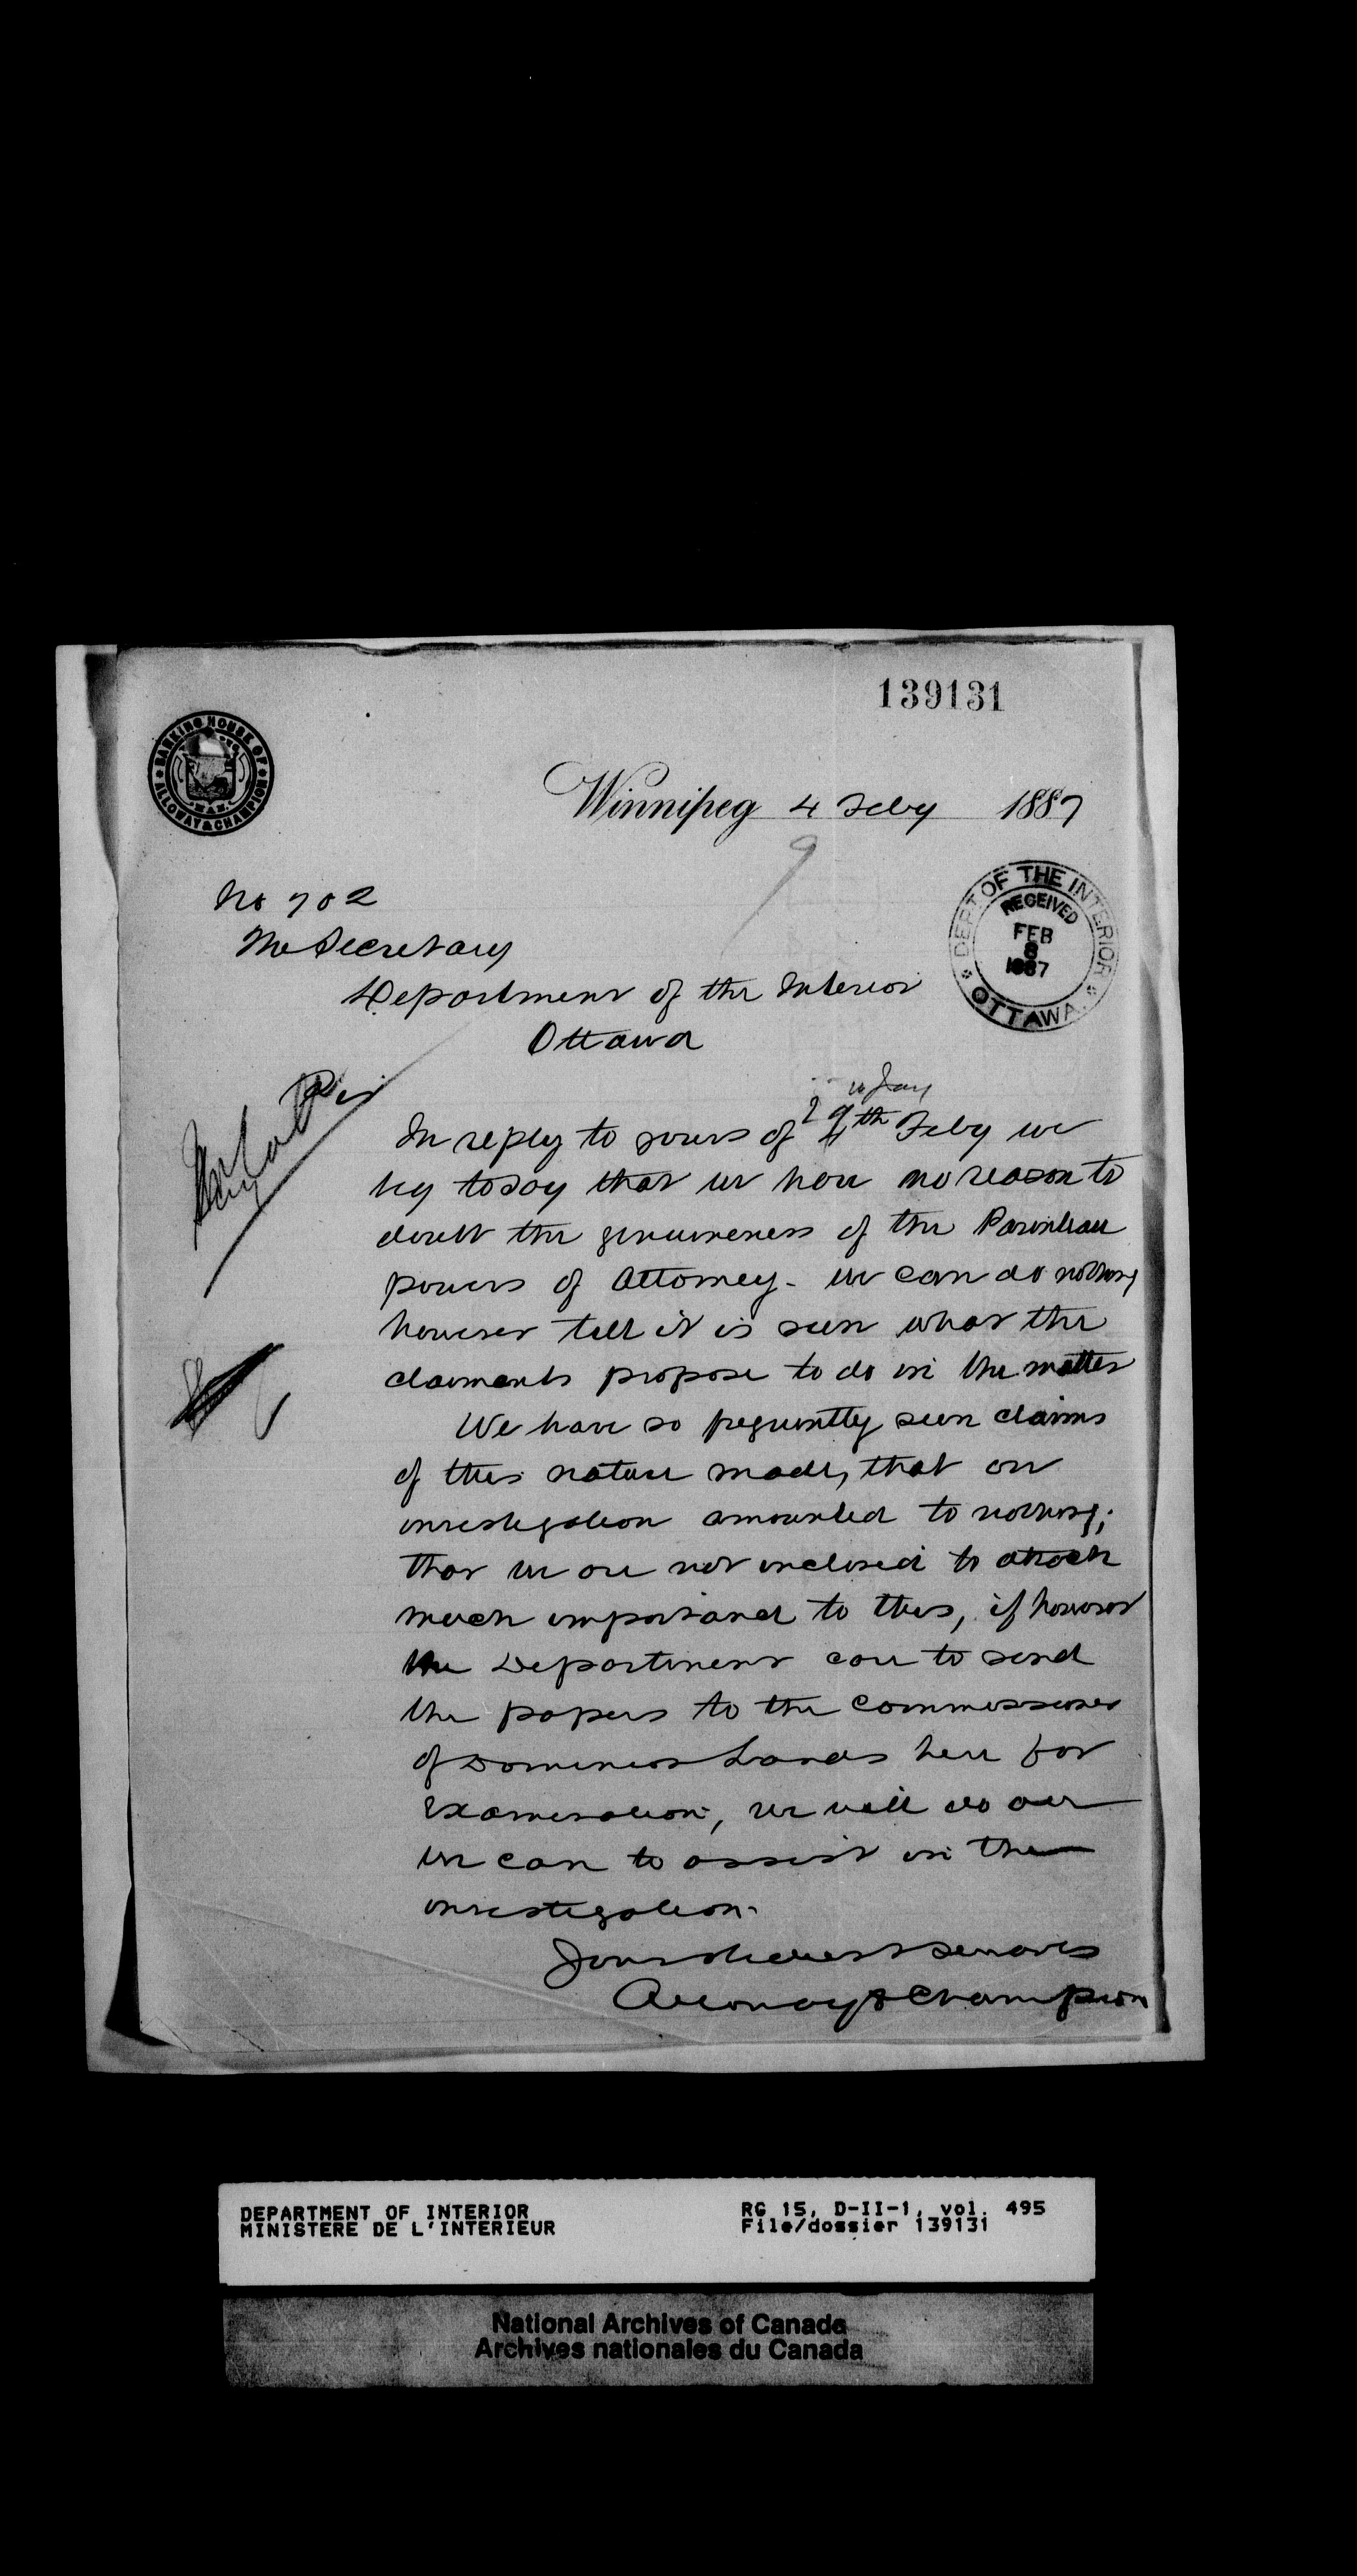 139131
BANKING HOUSE OF
ALLOWAY & CHAMPION
MAN.
Winnipeg 4 Feby 1887
No 702
The Secretary
Department of the Interior
Ottawa
DEPT. OF THE INTERIOR
RECEIVED
FEB
8
1887
OTTAWA
Sir
Jany
29
In reply to yours of 4th Feby we
beg to say that we have no reason to
doubt the genuineness of the
powers of Attorney - we can do nothing
however till it is seen what the
claimants propose to do in the matter
We have so frequently seen claims
of this nature made, that on
investigation amounted to nothing;
that we are not inclined to attach
much importance to this, if however
the Department care to send
the papers to the Commissioner
of Dominion Lands here for
Examination, we will do all
we can to assist in the
investigation.
Your obedient servants
Alloway & Champion
DEPARTMENT OF INTERIOR
MINISTERE DE L'INTERIEUR
RG 15, D-II-1, vol. 495
File/dossier 139131
National Archives of Canada
Archives nationales du Canada